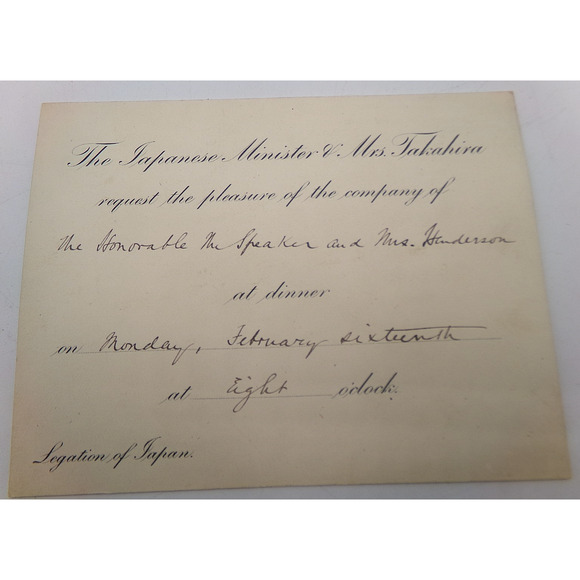 The Japanese Minister & Mrs. Takahira
request the pleasure of the company of
The Honorable The Speaker and Mrs. Henderson
at dinner
on Monday, February sixteenth
at Eight o'clock.
Legation of Japan.